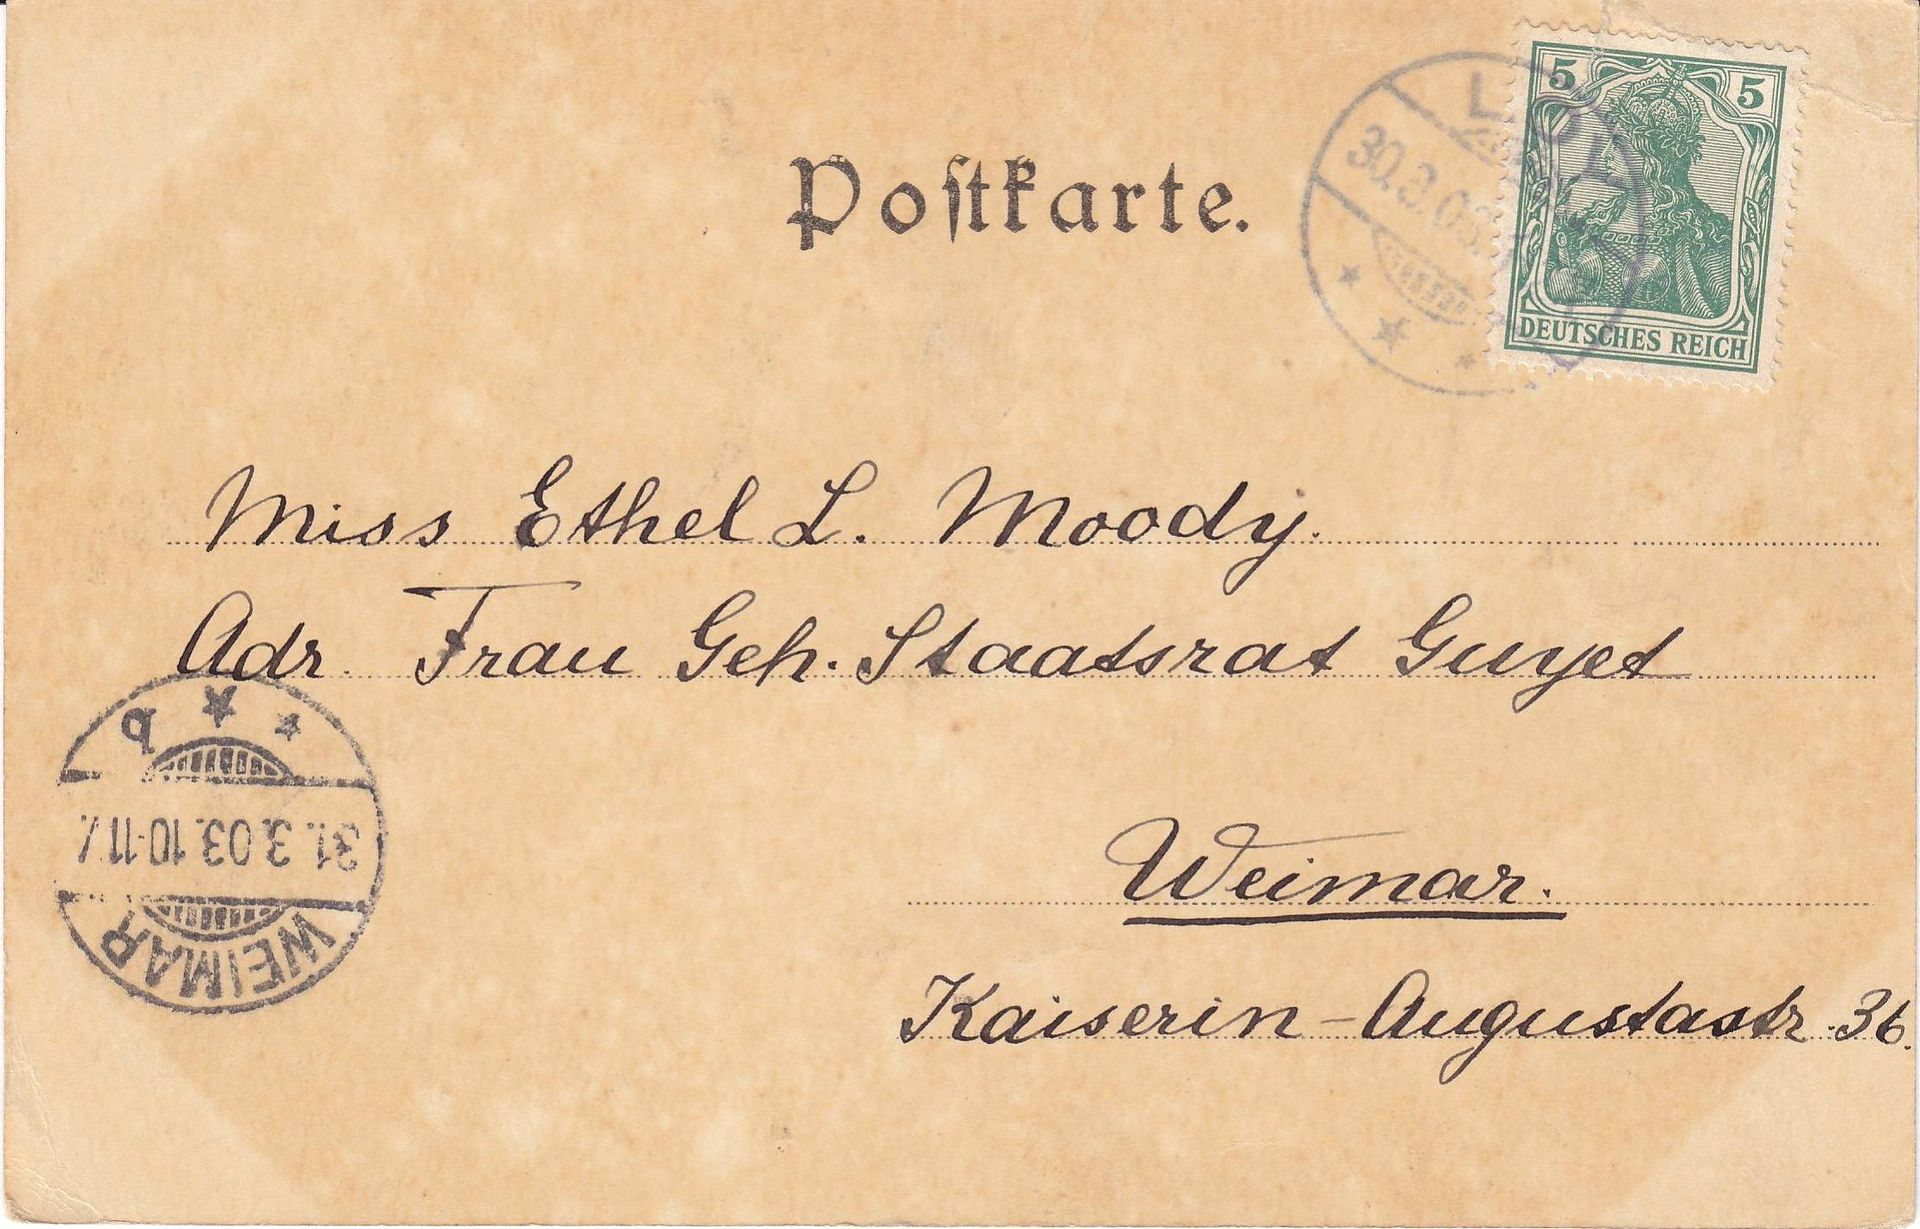 Postkarte.
5 5
30.3.03.
DEUTSCHES REICH
Miss Ethel L. Moody.
Adr. Frau Geh. Staatsrat Guyet
Weimar.
Kaiserin-Augustastr. 36.
b
31.3.03.10-11V.
WEIMAR